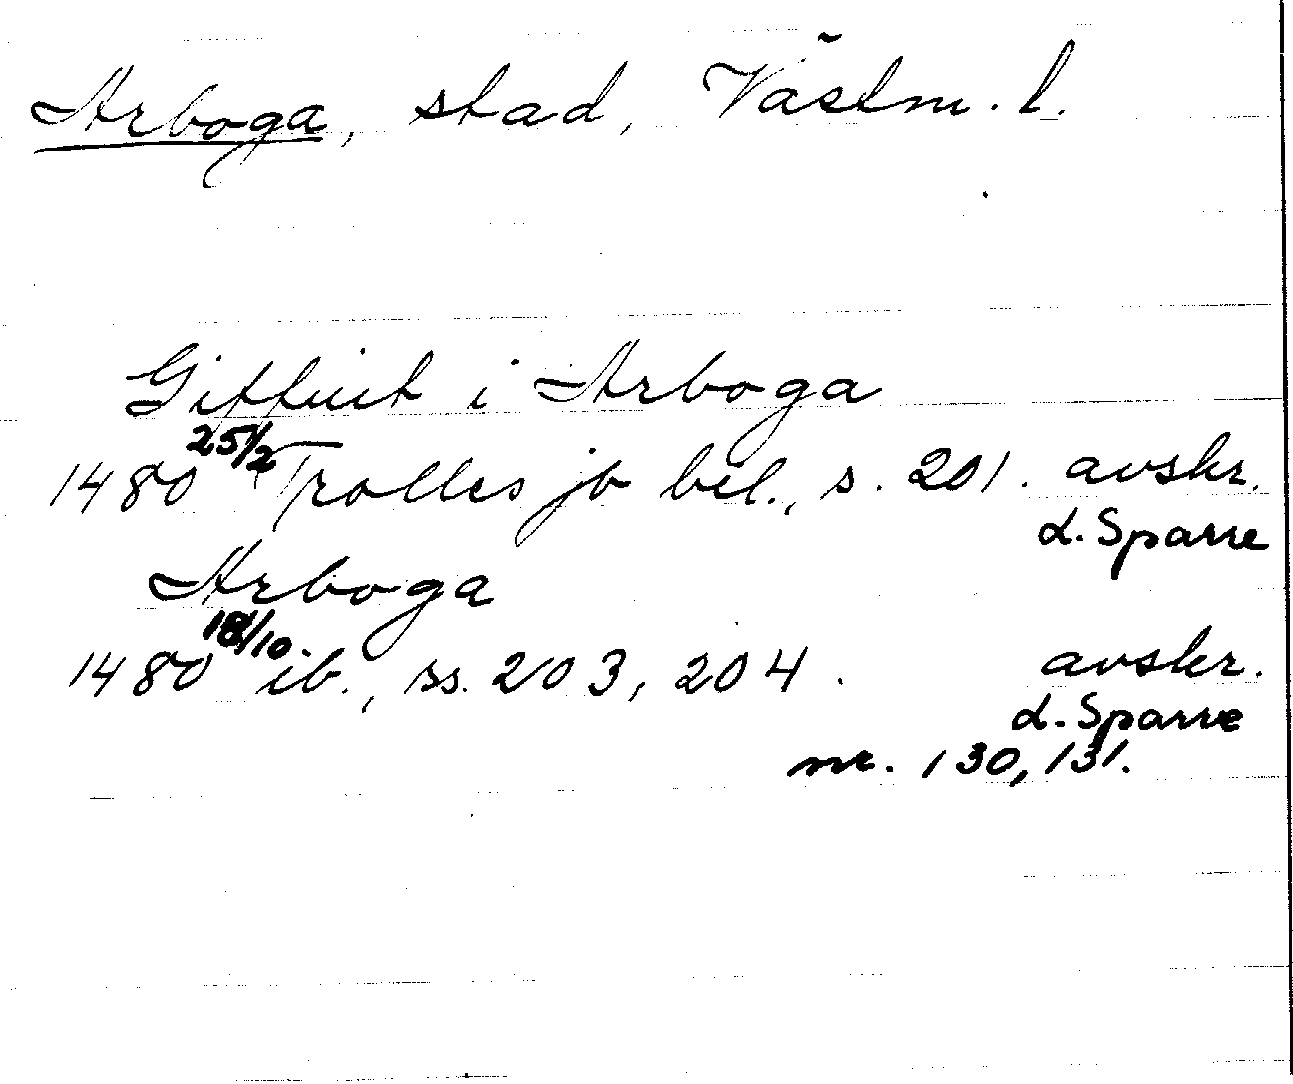 Arboga, stad, Västm. l.
Giffuit i Arboga
1480 25/2 Trolles jb bil., s. 201. avskr.
L. Sparre
Arboga
1480 18/10. ib., ss. 203, 204. avskr.
L. Sparre
nr. 130, 131.